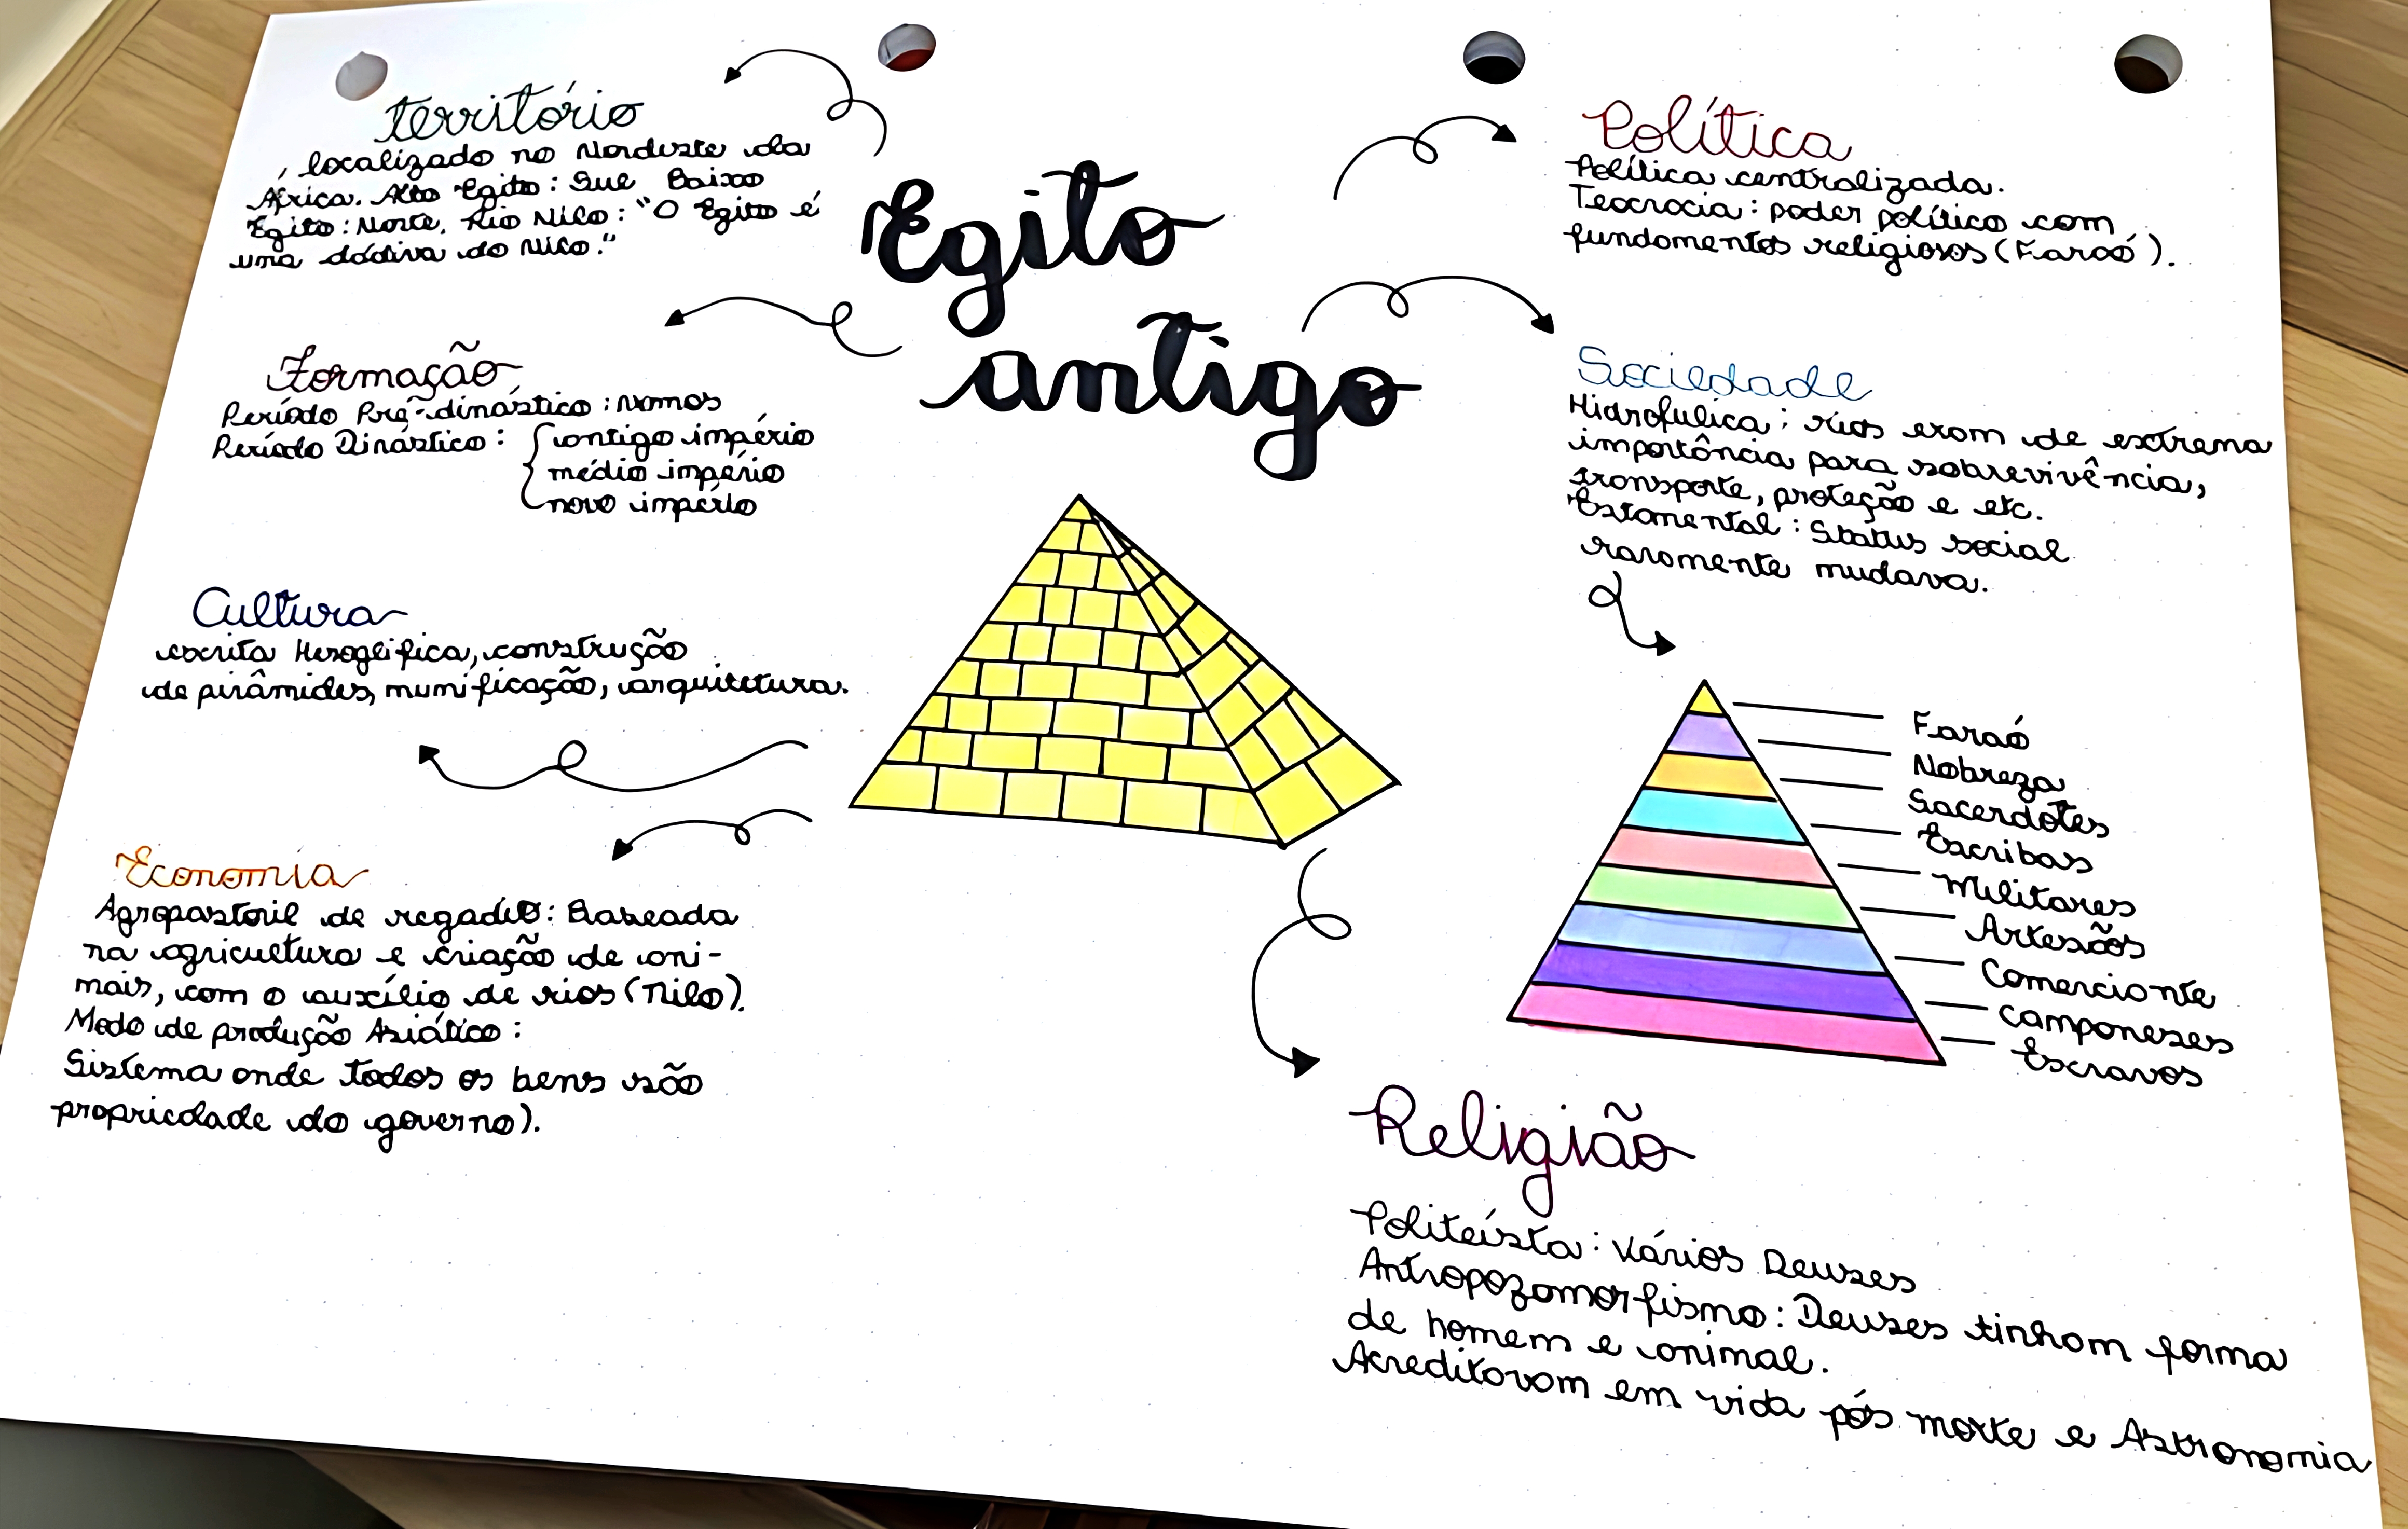 Egito
antigo
território
localizado no Nordeste da
África. Alto Egito: Sul Baixo
Egito: Norte. Rio Nilo: "O Egito é
uma dádiva do Nilo."
Formação
Período Pré-dinástico: Nomos
Período Dinástico: { antigo império
médio império
novo império
Cultura
escrita Hieroglífica, construção
de pirâmides, mumificação, arquitetura.
Economia
Agropastoril de regadio: Baseada
na agricultura e criação de ani-
mais, com o auxílio de rios (Nilo).
Modo de produção Asiático:
Sistema onde todos os bens são
propriedade do governo).
Política
Política centralizada.
Teocracia: poder político com
fundamentos religiosos (Faraó).
Sociedade
rios eram de extrema
importância para sobrevivência,
transporte, proteção e etc.
Estamental: Status social
raramente mudava.
Faraó
Nobreza
Sacerdotes
Escribas
Militares
Artesãos
Comerciante
camponeses
Escravos
Religião
Politeísta: Vários Deuses
Antropozomorfismo: Deuses tinham forma
de homem e animal.
Acreditavam em vida pós morte e Astronomia